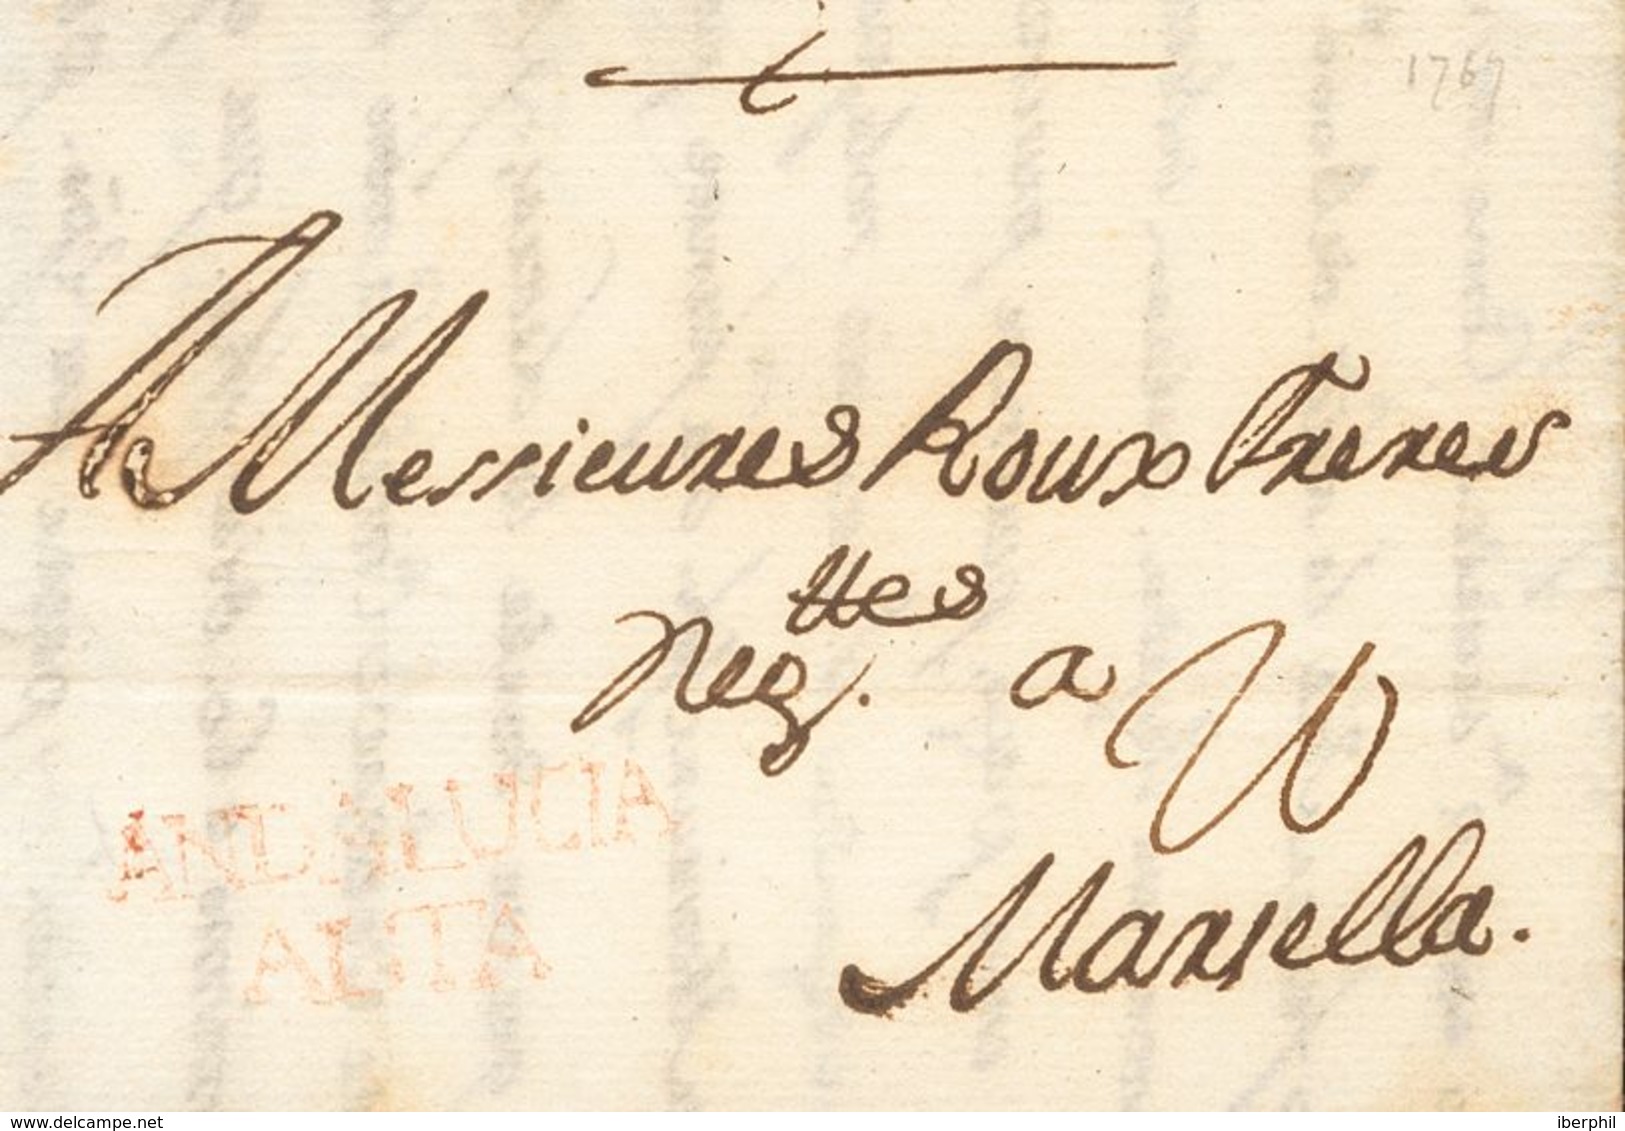 1767
A Messieures Roux Freres
Neg.ttes a
Marsella.
ANDALUCIA
ALTA
delcampe.net
iberphil